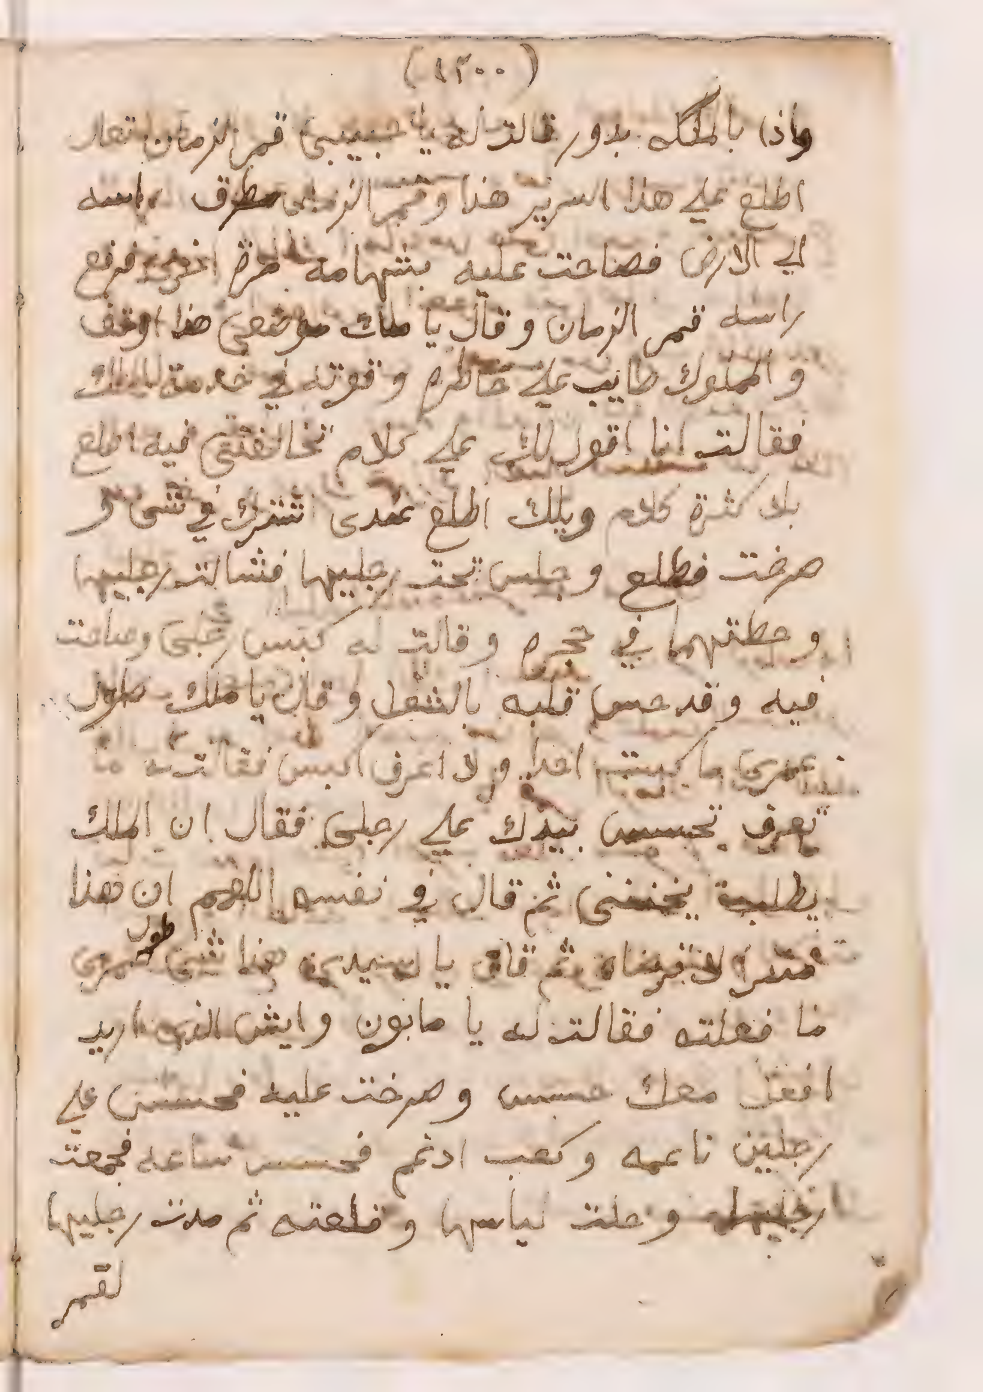 (١٢٠٠)
واذا بالملكه بدور قالت له يا حبيبي قمر الزمان تعال
اطلع على هذا السرير هذا وقمر الزمان مطرق راسه
الي الارض فصاحت عليه بشهامه مرة اخرى فرفع
راسه قمر الزمان وقال يا ملك موضعي هذا اوقف
والمملوك طايب على خاطره وقوته في خدمة الملك
فقالت انا اقول لك على كلام تخالفني فيه اطلع
بلا كثرة كلام ويلك اطلع عندى اشترك في شى و
صرخت فطلع وجلس تحت رجليها فشالت رجليها
وحطتهما في حجره وقالت له كبس رجلي وصاحت
فيه وقد حس قلبه بالشغل وقال يا ملك طول
عمري ما كبست احدا ولا اعرف اكبس فقالت له ما
تعرف تحسس بيدك على رجلي فقال ان الملك
ثم قال في نفسه اللهم ان هذا
ثم قال يا سيدي هذا شى طول عمري
ما فعلته فقالت له يا مابون وايش الذي اريد
افعل معك حسس وصرخت عليه فحسس على
رجلين ناعمه وكعب ادغم فحسس ساعه فجمعت
رجليها وحلت لباسها وقلعته ثم مدت رجليها
لقمر